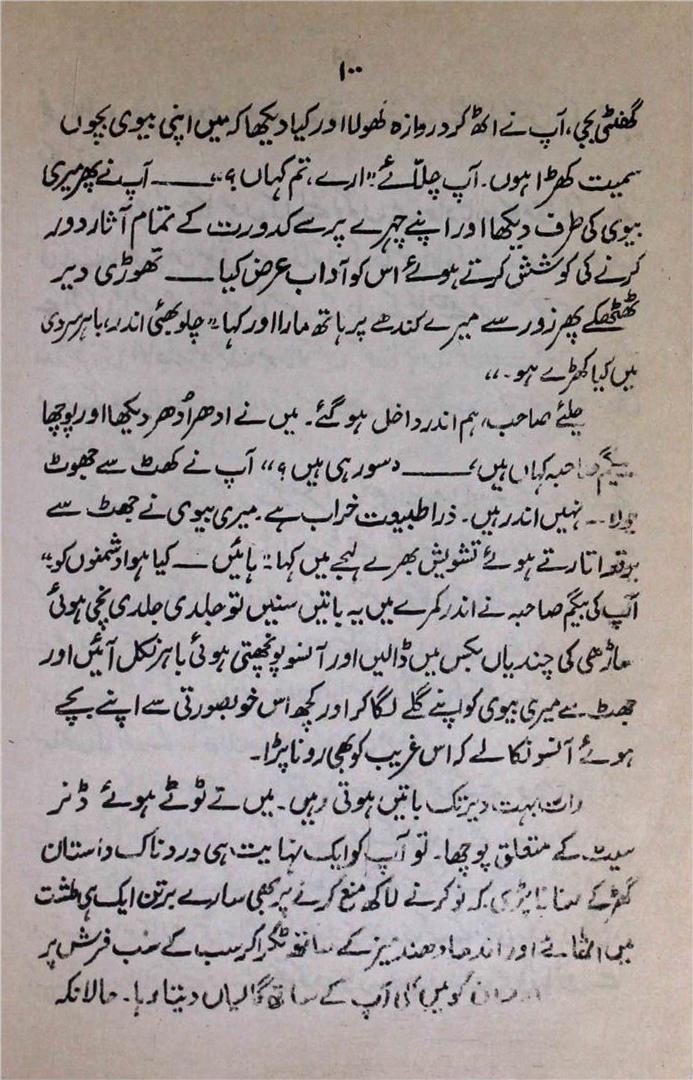 ۱۰۰
گھنٹی بجی، آپ نے اٹھ کر دروازہ کھولا اور کیا دیکھا کہ میں اپنی بیوی بچوں
سمیت کھڑا ہوں۔ آپ چلّائے "ارے، تم کہاں؟" ـــــ آپ نے پھر میری
بیوی کی طرف دیکھا اور اپنے چہرے پر سے کدورت کے تمام آثار دور
کرنے کی کوشش کرتے ہوئے اس کو آداب عرض کیا ـــــ تھوڑی دیر
ٹھٹھکے پھر زور سے میرے کندھے پر ہاتھ مارا اور کہا "چلو بھئی اندر، باہر سردی
میں کیا کھڑے ہو۔"
چلئے صاحب، ہم اندر داخل ہو گئے۔ میں نے ادھر اُدھر دیکھا اور پوچھا
بیگم صاحبہ کہاں ہیں، ـــــ سو رہی ہیں؟" آپ نے کھٹ سے جھوٹ
بولا ـــ نہیں اندر ہیں۔ ذرا طبیعت خراب ہے۔ میری بیوی نے جھٹ سے
برقعہ اتارتے ہوئے تشویش بھرے لہجے میں کہا "ہائیں ـــ کیا ہوا دشمنوں کو"
آپ کی بیگم صاحبہ نے اندر کمرے میں یہ باتیں سنیں تو جلدی جلدی نچی ہوئی
ساڑھی کی چندریاں بکس میں ڈالیں اور آنسو پونچھتی ہوئی باہر نکل آئیں اور
جھٹ سے میری بیوی کو اپنے گلے لگا کر اور کچھ اس خوبصورتی سے اپنے بچے
ہوئے آنسو نکالے کہ اس غریب کو بھی رونا پڑا۔
رات بہت دیر تک باتیں ہوتی رہیں۔ میں نے ٹوٹے ہوئے ڈنر
سیٹ کے متعلق پوچھا۔ تو آپ کو ایک نہایت ہی دردناک داستان
گھڑ کے سنانا پڑی کہ نوکر نے لاکھ منع کرنے پر بھی سارے برتن ایک ہی طشت
میں اٹھائے اور اندھا دھند میز کے ساتھ ٹکرا کر سب کے سب فرش پر
کو میں بھی آپ کے ساتھ گالیاں دیتا رہا۔ حالانکہ